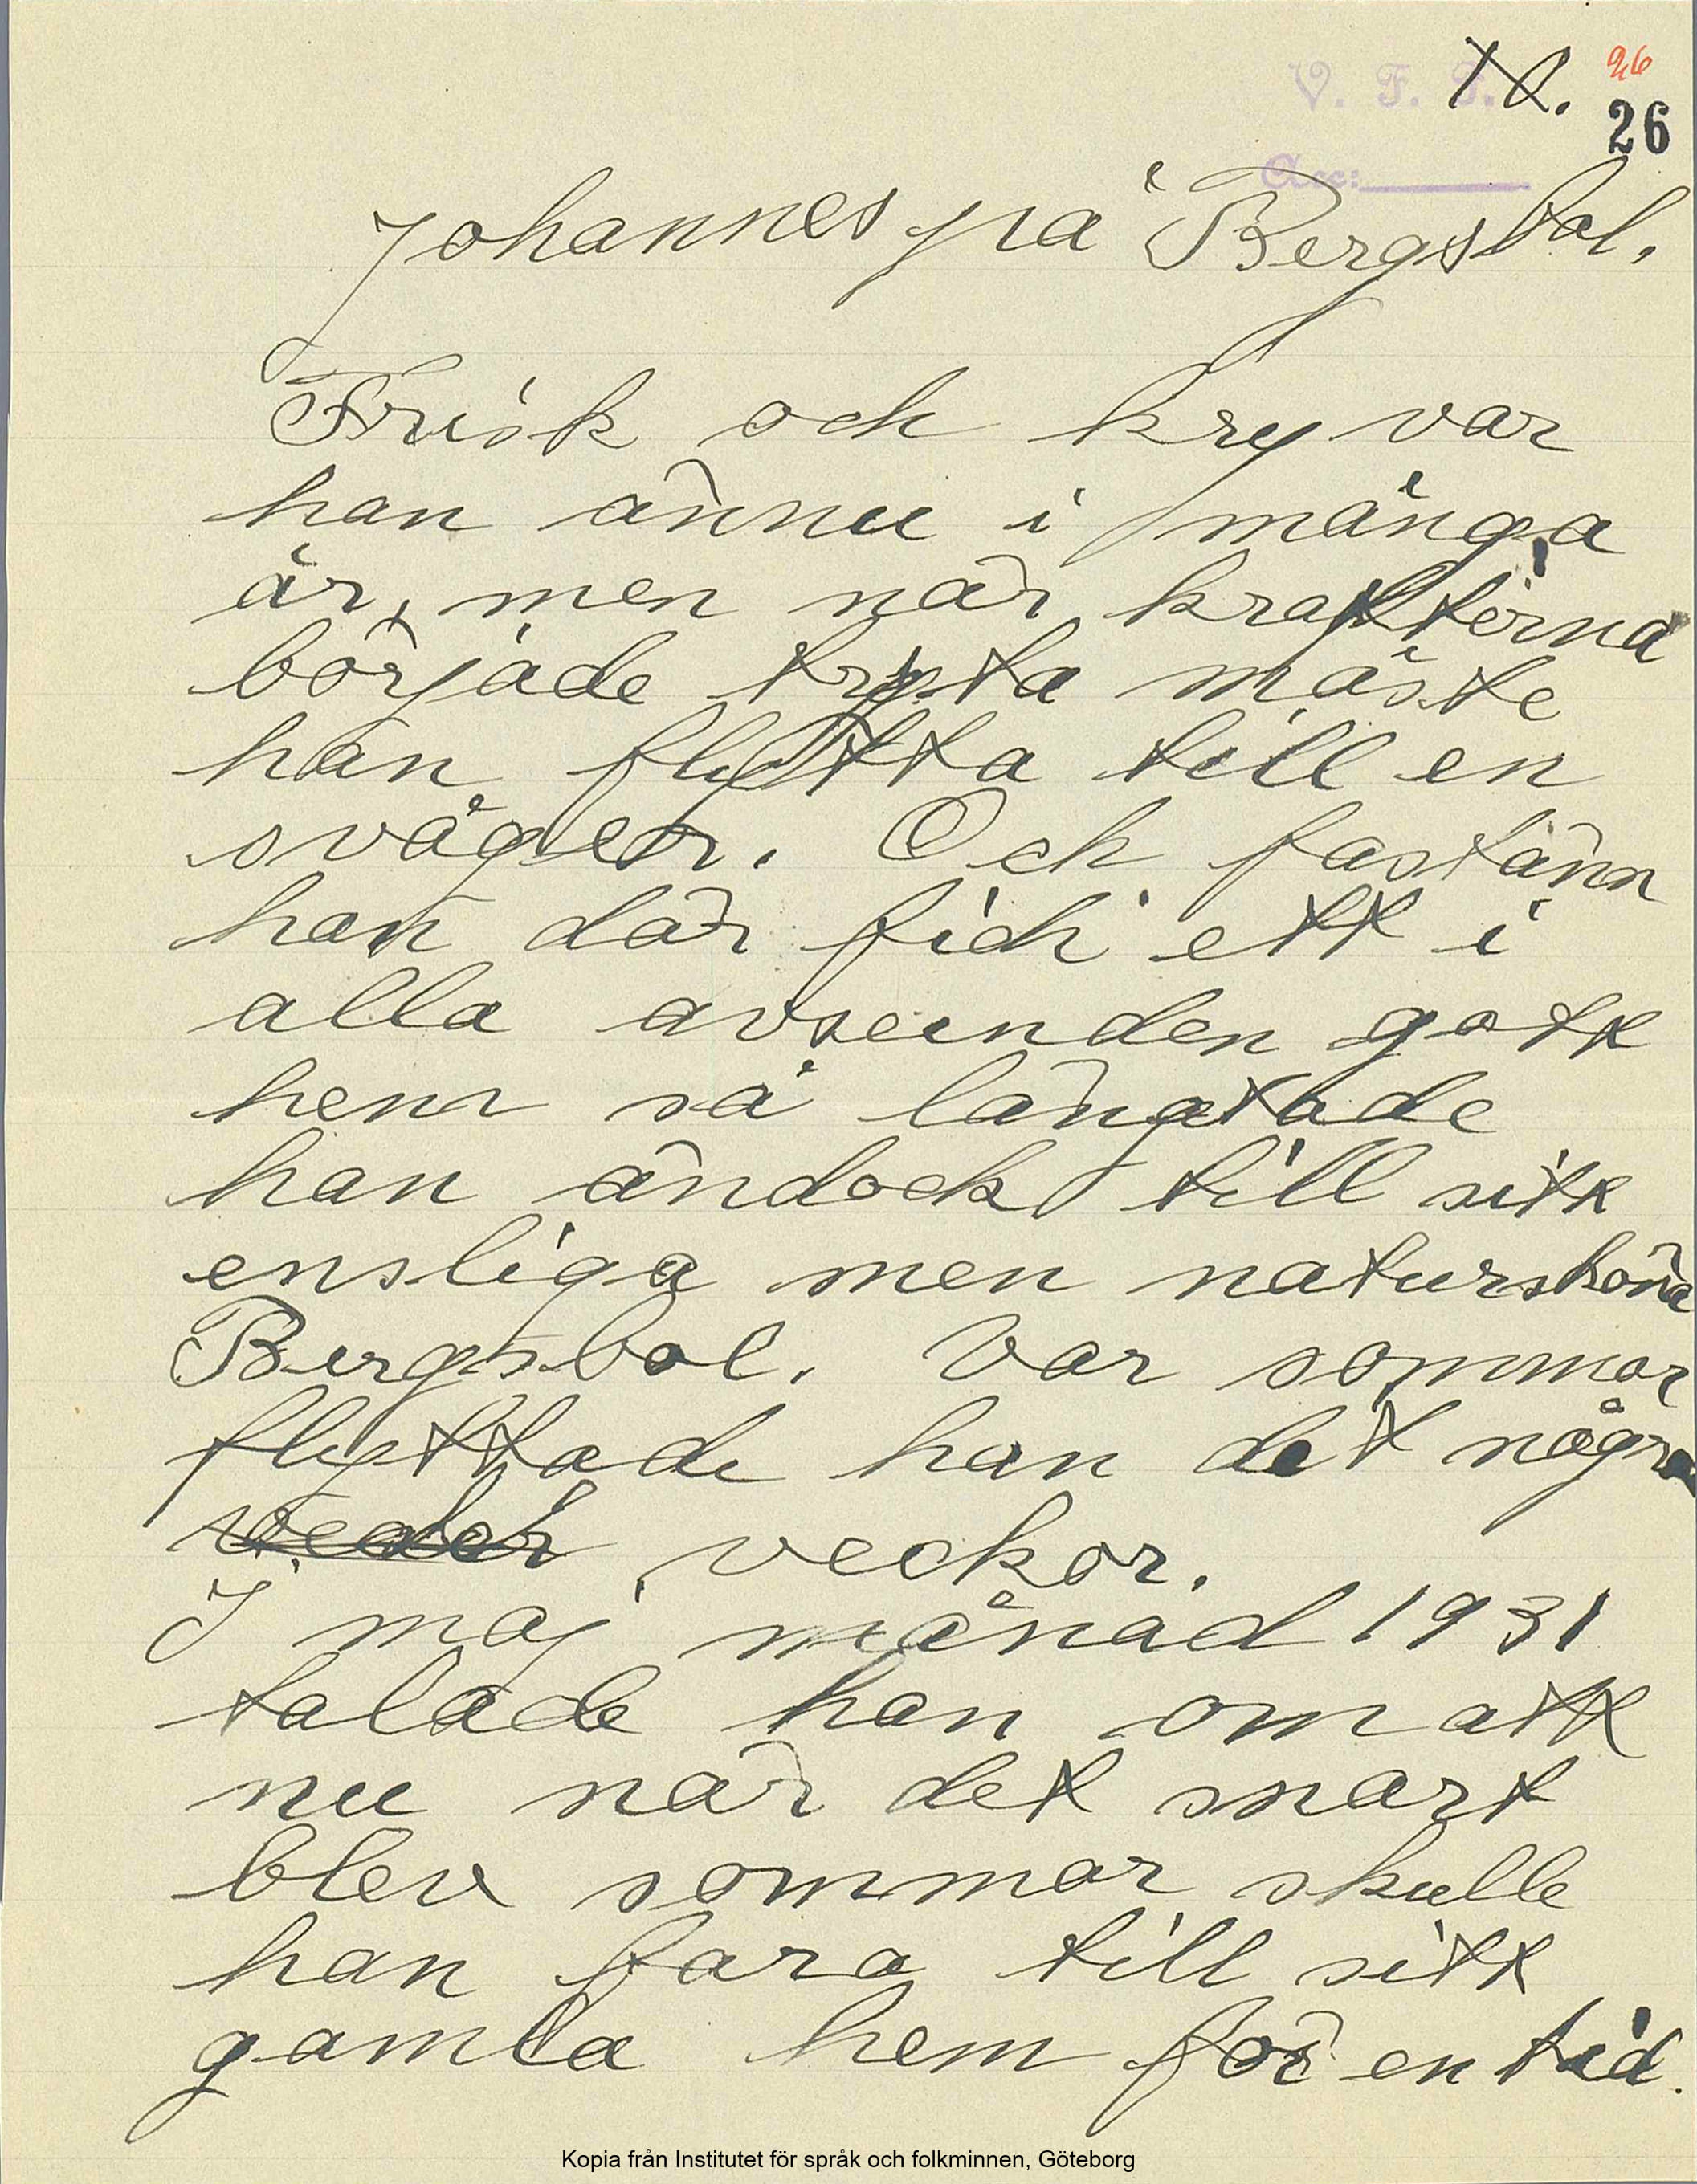 V. F. F. 10. 26
26
Acc:
Johannes på Bergsbol.
Frisk och kry var
han ännu i många
år, men när krafterna
började tryta måste
han flytta till en
svåger. Och fastän
han där fick ett i
alla avseenden gott
hem så längtade
han ändock till sitt
ensliga men natursköna
Bergsbol. Var sommar
flyttade han dit några
veckor.
I maj månad 1931
talade han om att
nu när det snart
blev sommar skulle
han fara till sitt
gamla hem för en tid.
Kopia från Institutet för språk och folkminnen, Göteborg